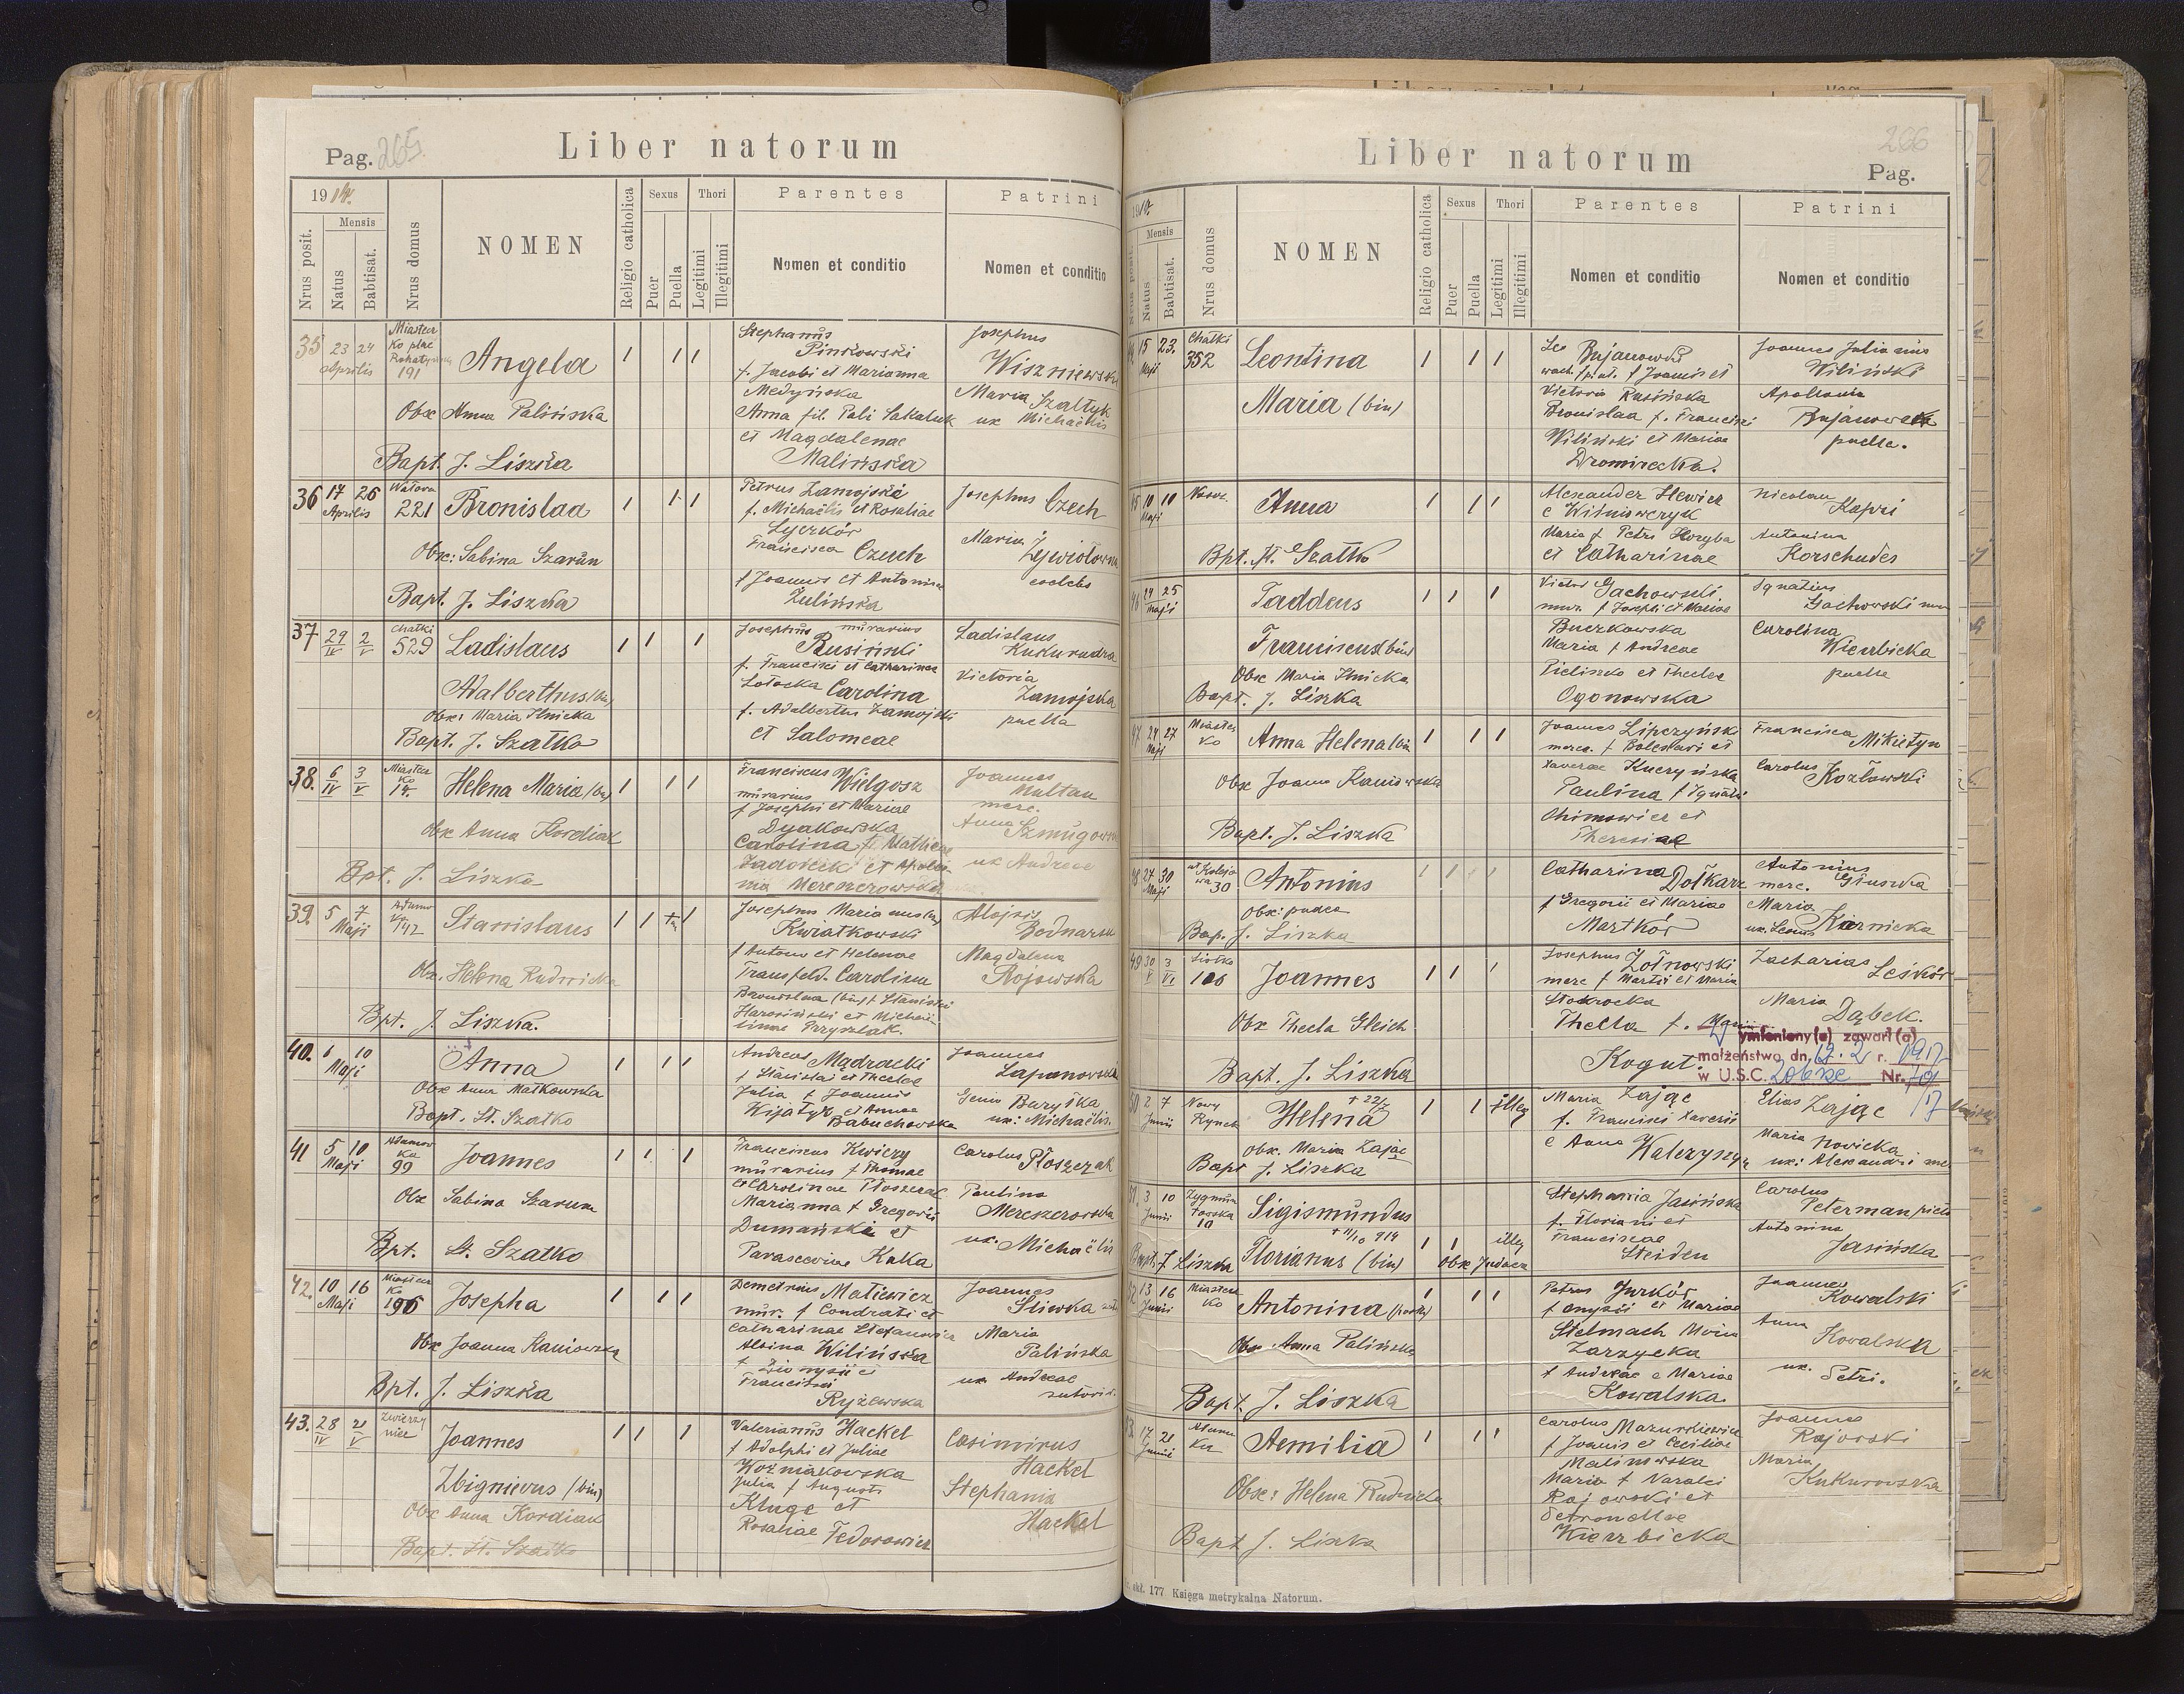 Pag. 265.
Liber natorum
1914.
Nrus posit.
Mensis
Natus
Babtisat.
Nrus domus
NOMEN
Religio catholica
Sexus
Puer
Puella
Thori
Legitimi
Illegitimi
Parentes
Nomen et conditio
Patrini
Nomen et conditio
35 23 24 Aprilis
191
Angela
1 1 1
Obx Anna Palińska
Bapt. J. Liszka
Stephanus
Pinkowski
f. Jacobi et Marianna
Medyńska
Anna fil. Pali Sakaluk
et Magdalenae
Malińska
Josephus
Wiszniewski
Maria Szaltyk
ux Michaëlis
36 17 26 Aprilis
Watowa
221
Bronislaa
1 1 1
Obx: Sabina Szarun
Bapt. J. Liszka
Petrus Zamojski
f. Michaëlis et Rosaliae
Francisca Czuch
f Joannis et Antonina
Zulińska
Josephus Czech
Maria
coelebs
37 29/IV 2/V
Chatki
529
Ladislaus
Adalberthus (bin)
1 1 1
Obx: Maria Ilnicka
Bapt. J. Szatko
Josephus murarius
Rusiński
f. Francisci et Catharinae
Lotocka Carolina
f. Adalbertus Zamojski
et Salomeae
Ladislaus
Kukurudza
Victoria
Zamojska
puella
38. 6/IV 3/V
Miasteczko
14.
Helena Maria (bin)
1 1 1
Obx Anna Kordiak
Bpt. J. Liszka
Franciscus Wielgosz
murarius
f Josephi et Mariae
Dyakowska
Carolina f. Mathiae
Joannes
Multan
merc.
Anna
ux Andreae
39. 5 7 Maji
142
Stanislaus
1 1 1
Obx. Helena Rudnicka
Bpt. J. Liszka.
Josephus Marianus (bin)
Kwiatkowski
f Antoni et Helenae
Transfeld. Carolina
Bronislaa (bin) f Stanislai
Alojsis
Bednarski
Magdalena
Rojowska
40. 6 10 Maji
Anna
1 1 1
Obx Anna Matkowska
Bapt. St. Szatko
Andreas Mądracki
f Stanislai et Theclae
Julia f Joannis
et Annae
Babuchowska
Joannes
Lapanowski
Genio Baryska
ux: Michaëlis.
41 5 10 Maji
Adamowka
99
Joannes
1 1 1
Obx Sabina Szarun
Bpt. St. Szatko
Franciscus Kwiczy
murarius f Thomae
et Carolinae Ptoszczak
Marianna f Gregorii
Dumański et
Parascevine Kaka
Carolus Ptoszczak
Paulina
Mereszerowska
ux. Michaëlis
42. 10 16 Maji
Miasteczko
196
Josepha
1 1 1
Obx Joanna Kaniowska
Bpt. J. Liszka
Demetrius Matiewicz
mur. f Condrati et
Catharinae Stefanowicz
Albina Wilińska
f Dionysii et
Ryżewska
Joannes
Sliwka
Maria
Palińska
ux Andreae
sutoris.
43. 28/IV 21/V
Zwierzyniec
Joannes
Zbignievus (bin)
1 1 1
Obx Anna Kordiak
Bapt. St. Szatko
Valerianus Hackel
f Adolphi et Juliae
Woźniakowska
Julia f Augusti
Kluge et
Rosaliae Fedorowicz
Casimirus
Hackel
Stephania
Hackel
266
Pag.
Liber natorum
Mensis
Natus
Babtisat.
Nrus domus
NOMEN
Religio catholica
Sexus
Puer
Puella
Thori
Legitimi
Illegitimi
Parentes
Nomen et conditio
Patrini
Nomen et conditio
15 23. Maji
Chatki
352
Leontina
Maria (bin)
1 1 1
Leo Bujanowski
f Joannis et
Victoria Rusińska
Bronislaa f. Francisci
Wiliński et Mariae
Dromirecka.
Joannes Julianus
Wiliński
Apollonia
Bujanowska
puella.
45 10 10 Maji
Anna
1 1 1
Bpt. St. Szatko
Alexander Hewicz
e Wiśniowczyk
Maria f Petri Horyba
et Catharinae
Nicolaus
Kapri
Antonina
Korschudes
46 24 25 Maji
Taddeus
Franciscus (bin)
1 1 1
Obx Maria Ilnicka
Bapt. J. Liszka
Victor Gachowski
mur. f Josephi et Mariae
Buczkowska
Maria f Andreae
Pieliszko et Theclae
Ogonowska
Ignatius
Gachowski mur
Carolina
Wierzbicka
puella
47 24 27 Maji
Miasteczko
Anna Helena (bin
1 1 1
Obx Joanna Kaniowska
Bapt. J. Liszka
Joannes Lipczyński
merc. f Boleslavi et
Xaverae Kuczyńska
Paulina f Ignatii
Chimowicz et
Theresiae
Francisca
Mikietyn
Carolus
Kozłowski
48 27 30 Maji
30
Antonius
1 1 1
Obx: judaea
Bap. J. Liszka
Catharina Dołkarz
f Gregorii et Mariae
Martków
Antonius
merc. Głuszka
Maria
ux. Leonis Karnicka
49 30/V 3/VI
106
Joannes
1 1 1
Obx Thecla Gleich
Bapt. J. Liszka
Josephus Zołnowski
merc f Martii et Maria
Stokrocka
Thecla f.
Kogut.
Zacharias Leśków
Maria
Dąbek.
Wymieniony(a) zawarł(a)
małżeństwo dn. 12.2 r. 1917
w U.S.C. Nr.
50 2 7 Junii
Nowy
Rynek
Helena
1 1 illeg
obx. Maria Zając
Bapt J. Liszka
Maria Zając
f. Francisci Xaverii
e Anna Waleryszyn
Elias Zając
Maria Nowicka
ux: Alexandri
51. 3 10 Junii
Zygmuntowska
10
Sigismundus
+ 11/10 914
Florianus (bin)
1 1 illeg
Bapt. J Liszka
Obx Judaea
Stephania Jasińska
f. Floriani et
Franciscae
Steiden
Carolus
Peterman
Antonina
Jasińska
52 13 16 Junii
Miasteczko
Antonina
1 1 1
Obx Anna Palińska
Bapt. J. Liszka
Petrus Jurków
et Mariae
Stelmach Maria
Zarzycka
f Andreae e Mariae
Kowalska.
Joannes
Kowalski
Anna
Kowalska
ux. Petri.
17 21 Junii
Aemilia
1 1 1
Obx: Helena Rudnicka
Bapt J. Liszka
Carolus Mazurkiewicz
f Joannis et Ceciliae
Malinowska
Maria f Natalii
Rajowski et
Petronellae
Wierzbicka
Joannes
Rajowski
Maria
Kukurowska
177 Księga metrykalna Natorum.